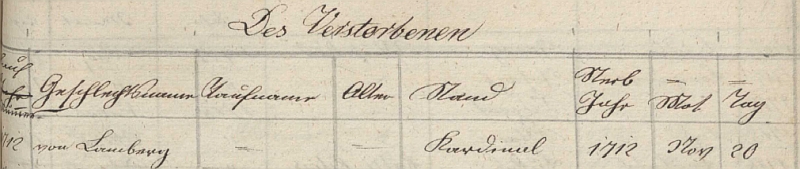 Des Verstorbenen
Geschlechtsname Taufname Alter Stand Sterb Jahr — Mot. — Tag
1712 von Lamberg — — Kardinal 1712 Nov 20